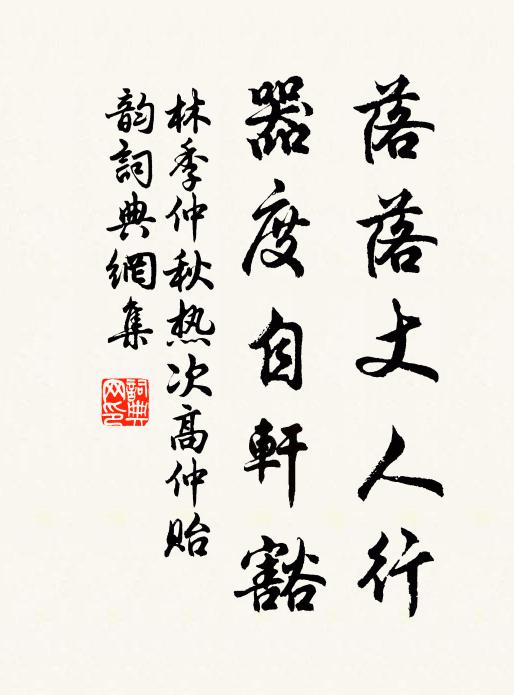 落落丈人行
器度自軒豁
林季仲秋热次高仲貽
韵詞典網集
詞典网印